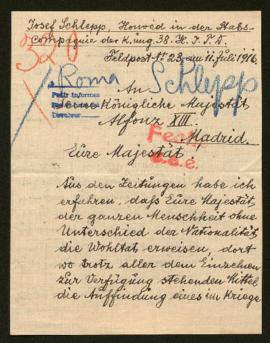 Josef Schlepp, Honvéd in der Stabs-
compagnie der k. ung. 38. H. I. T. D.
Feldpost № 23, am 11. Juli 1916.
320
Roma
Schlepp
An
Seine Königliche Majestät
Pedir informes
Alfonz XIII.
Madrid.
Eure Majestät!
Aus den Zeitungen habe ich
erfahren, daß Eure Majestät
der ganzen Menschheit ohne
Unterschied der Nationalität
die Wohltat erweisen, dort
wo trotz aller dem Einzelnen
zur Verfügung stehenden Mittel
die Auffindung eines im Kriege